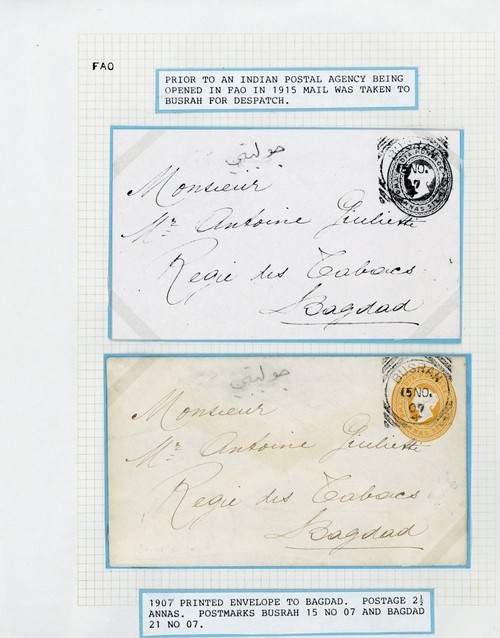 FAO
PRIOR TO AN INDIAN POSTAL AGENCY BEING
OPENED IN FAO IN 1915 MAIL WAS TAKEN TO
BUSRAH FOR DESPATCH.
جوليتي
NO.
Monsieur
Mr Antoine Giulietti
Regie des Tabacs
Bagdad
جوليتي
BUSRAH
15 NO.
07
Monsieur
Mr Antoine Giulietti
Regie des Tabacs
Bagdad
1907 PRINTED ENVELOPE TO BAGDAD. POSTAGE 2½
ANNAS. POSTMARKS BUSRAH 15 NO 07 AND BAGDAD
21 NO 07.